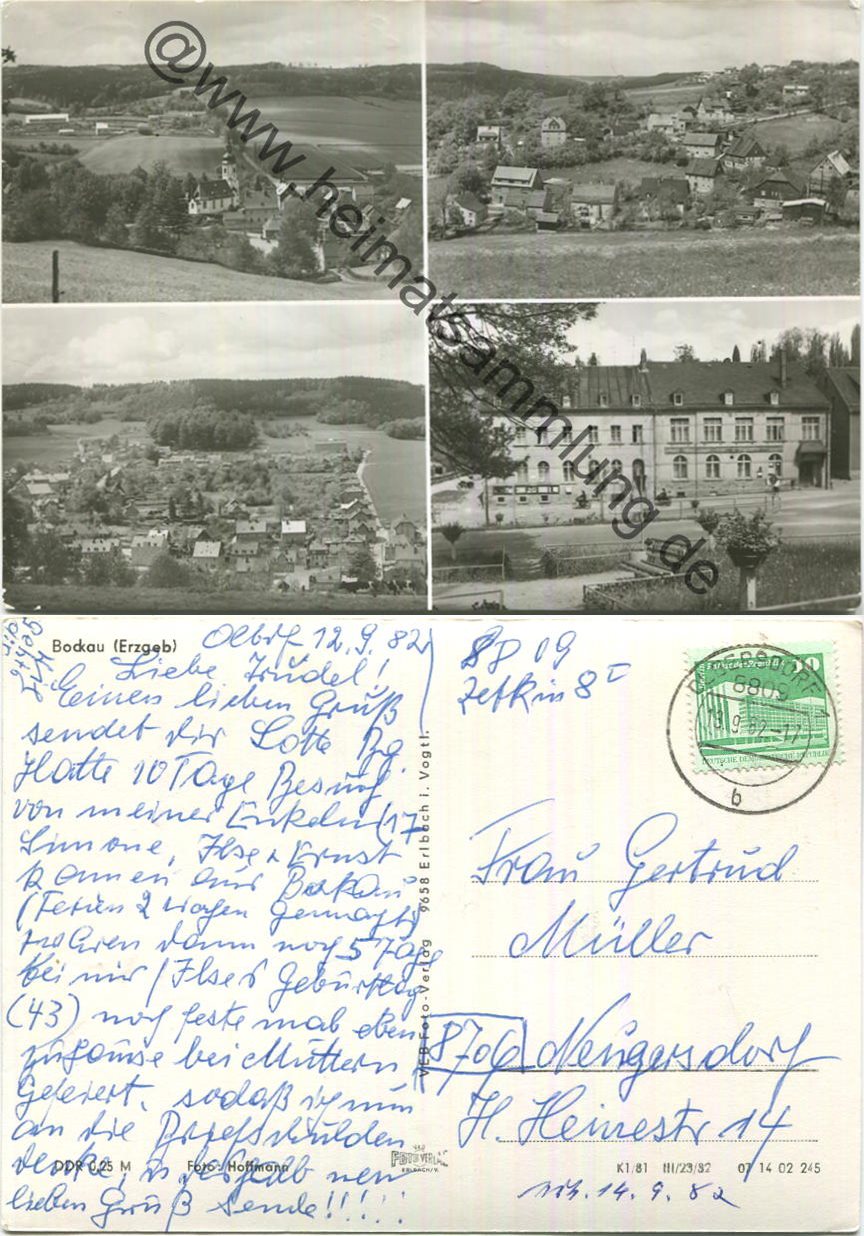 @www.heimatsammlung.de
Bockau (Erzgeb)
Geht's
Dir
gut?
12.9.82
Liebe Trudel!
Einen lieben Gruß
sendet dir Lotte Bg.
Hatte 10 Tage Besuch
von meiner Enkeln (17
Simone, Ilse + Ernst
kamen aus Bockau
(Ferien 2 Wochen gemacht)
waren dann noch 5 Tage
bei mir / Ilses Geburtstag
(43) noch feste mal eben
zuhause bei Muttern
Gefeiert, sodaß ich nun
an die Briefschulden
denke, u. deshalb nen
lieben Gruß sende!!!!!
DDR 0,25 M
Foto: Hoffmann
VEB Foto-Verlag 9658 Erlbach i. Vogtl.
8809
Zetkin 8 I
10
DEUTSCHE DEMOKRATISCHE REPUBLIK
8809
13.9.82-17
b
Frau Gertrud
Müller
8706 Neugersdorf
H. Heinestr 14
VEB
FOTO VERLAG
ERLBACH/V.
K1/81 III/23/82 07 14 02 245
14.9.82